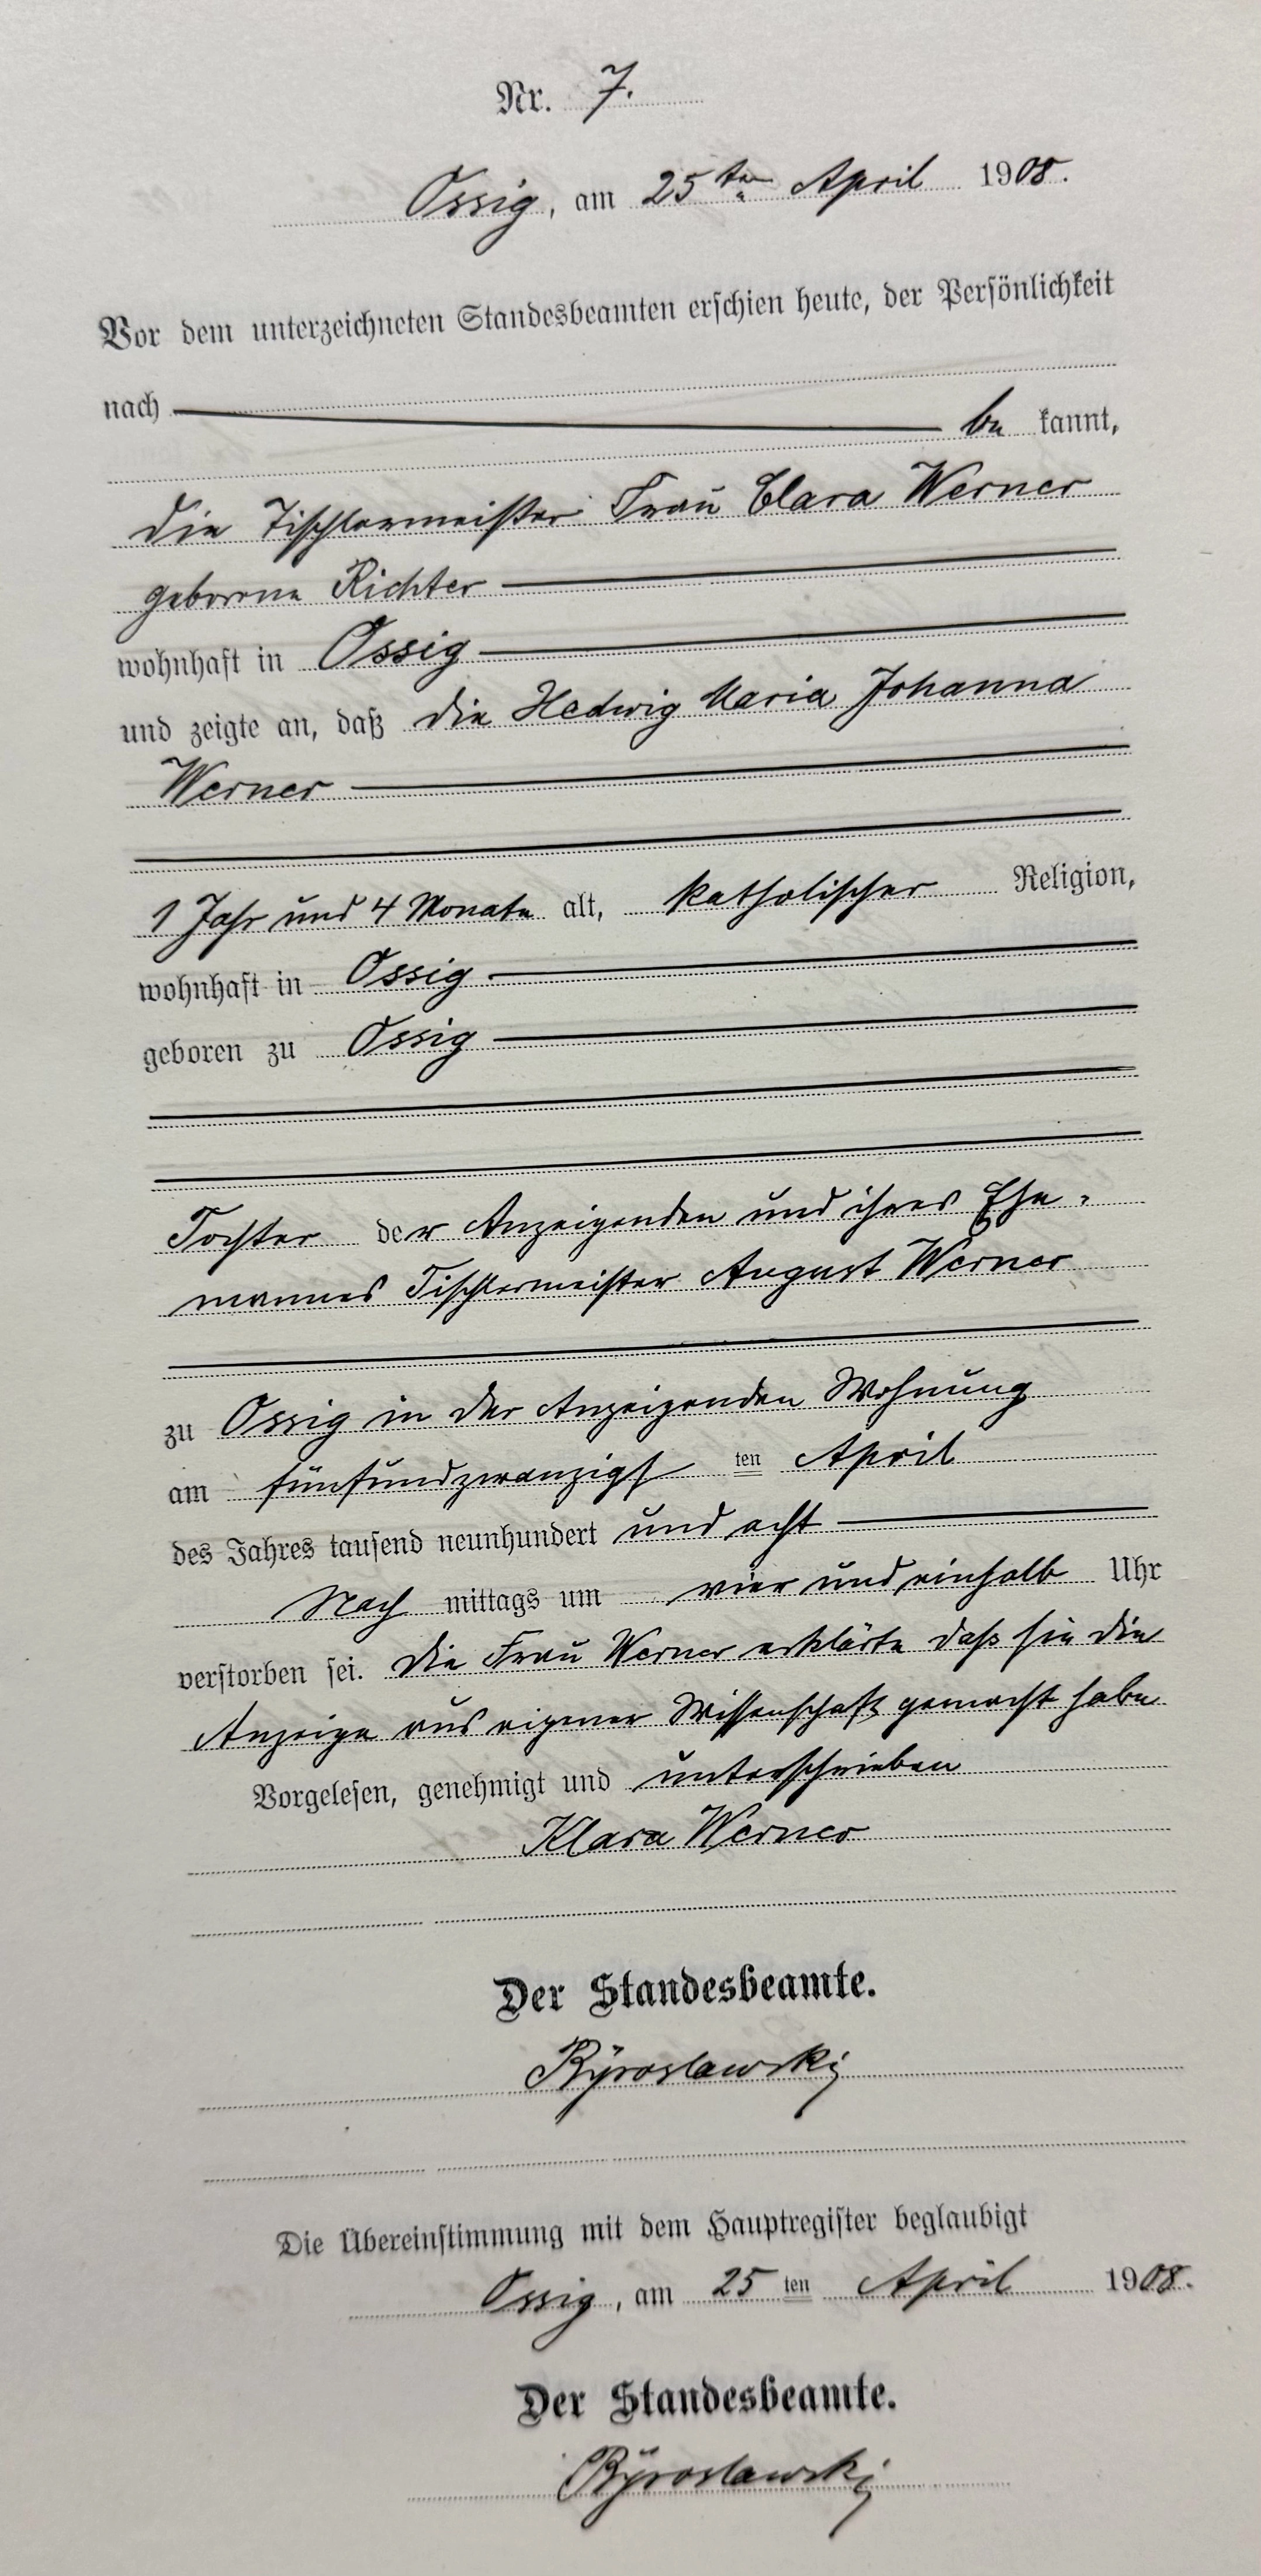 Nr. 7.
Ossig, am 25ten April 1908.
Vor dem unterzeichneten Standesbeamten erschien heute, der Persönlichkeit
nach
be kannt,
die Tischlermeister Frau Clara Werner
geborene Richter
wohnhaft in Ossig
und zeigte an, daß die Hedwig Maria Johanna
Werner
1 Jahr und 4 Monate alt, katholischer Religion,
wohnhaft in Ossig
geboren zu Ossig
Tochter der Anzeigenden und ihres Ehe-
mannes Tischlermeister August Werner
zu Ossig in der Anzeigenden Wohnung
am fünfundzwanzigsten April
des Jahres tausend neunhundert und acht
Nach mittags um vier und einhalb Uhr
verstorben sei. Die Frau Werner erklärte daß sie die
Anzeige aus eigener Wissenschaft gemacht habe
Vorgelesen, genehmigt und unterschrieben
Klara Werner
Der Standesbeamte.
Byroslawski
Die Übereinstimmung mit dem Hauptregister beglaubigt
Ossig, am 25 ten April 1908.
Der Standesbeamte.
Byroslawski